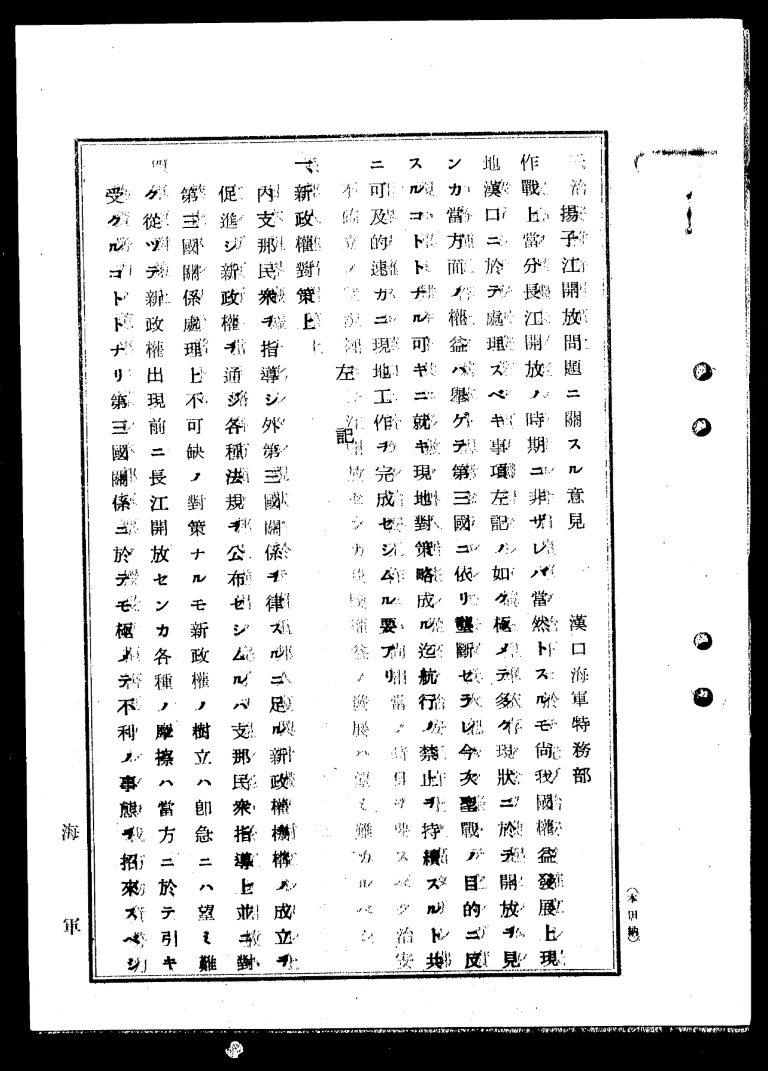 揚子江開放問題ニ關スル意見　漢口海軍特務部
作戰上當分長江開放ノ時期ニ非ザレバ當然トスルモ尚我國權益發展上現
地漢口ニ於テ處理スベキ事項左記ノ如ク極メテ多ク現狀ニ於テ開放ヲ見
ンカ當方面ノ權益ハ擧ゲテ第三國ニ依リ壟斷セラレ今次聖戰ノ目的ニ反
スルコトトナル可キニ就キ現地對策略成ル迄航行ノ禁止ヲ持續スルト共
ニ可及的速カニ現地工作ヲ完成セシムル要アリ
左記
一、新政權對策上
內支那民衆ヲ指導シ外第三國關係ヲ律スルニ足ル新政權機構ノ成立ヲ
促進シ新政權ヲ通ジ各種法規ヲ公布セシムルハ支那民衆指導上並ニ對
第三國關係處理上不可缺ノ對策ナルモ新政權ノ樹立ハ卽急ニハ望ミ難
ク從ツテ新政權出現前ニ長江開放センカ各種ノ摩擦ハ當方ニ於テ引キ
受クルコトトナリ第三國關係ニ於テモ極メテ不利ノ事態ヲ招來スベシ
海軍